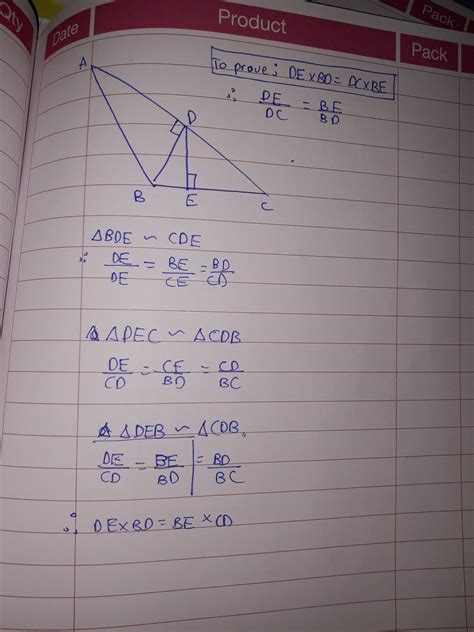 Qty
Date
Product
Pack
Pack
To prove; DE×BD = DC×BE
∴ DE/DC = BE/BD
A
D
B
E
C
ΔBDE ~ CDE
∴ DE/DE = BE/CE = BD/CD
ΔDEC ~ ΔCDB
DE/CD = CE/BD = CD/BC
ΔDEB ~ ΔCDB
DE/CD = BE/BD = BD/BC
∴ DE×BD = BE×CD
Pack